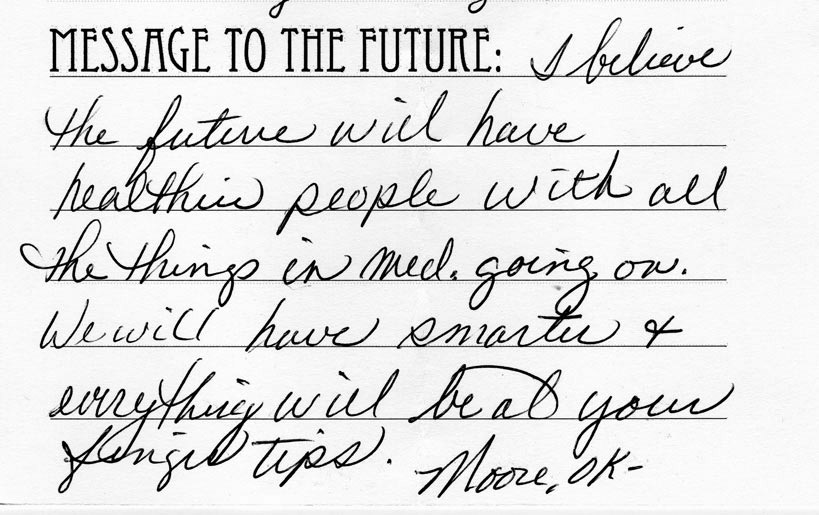 MESSAGE TO THE FUTURE: I believe
the future will have
healthier people with all
the things in med. going on.
We will have smarter &
everything will be at your
finger tips. Moore, OK-